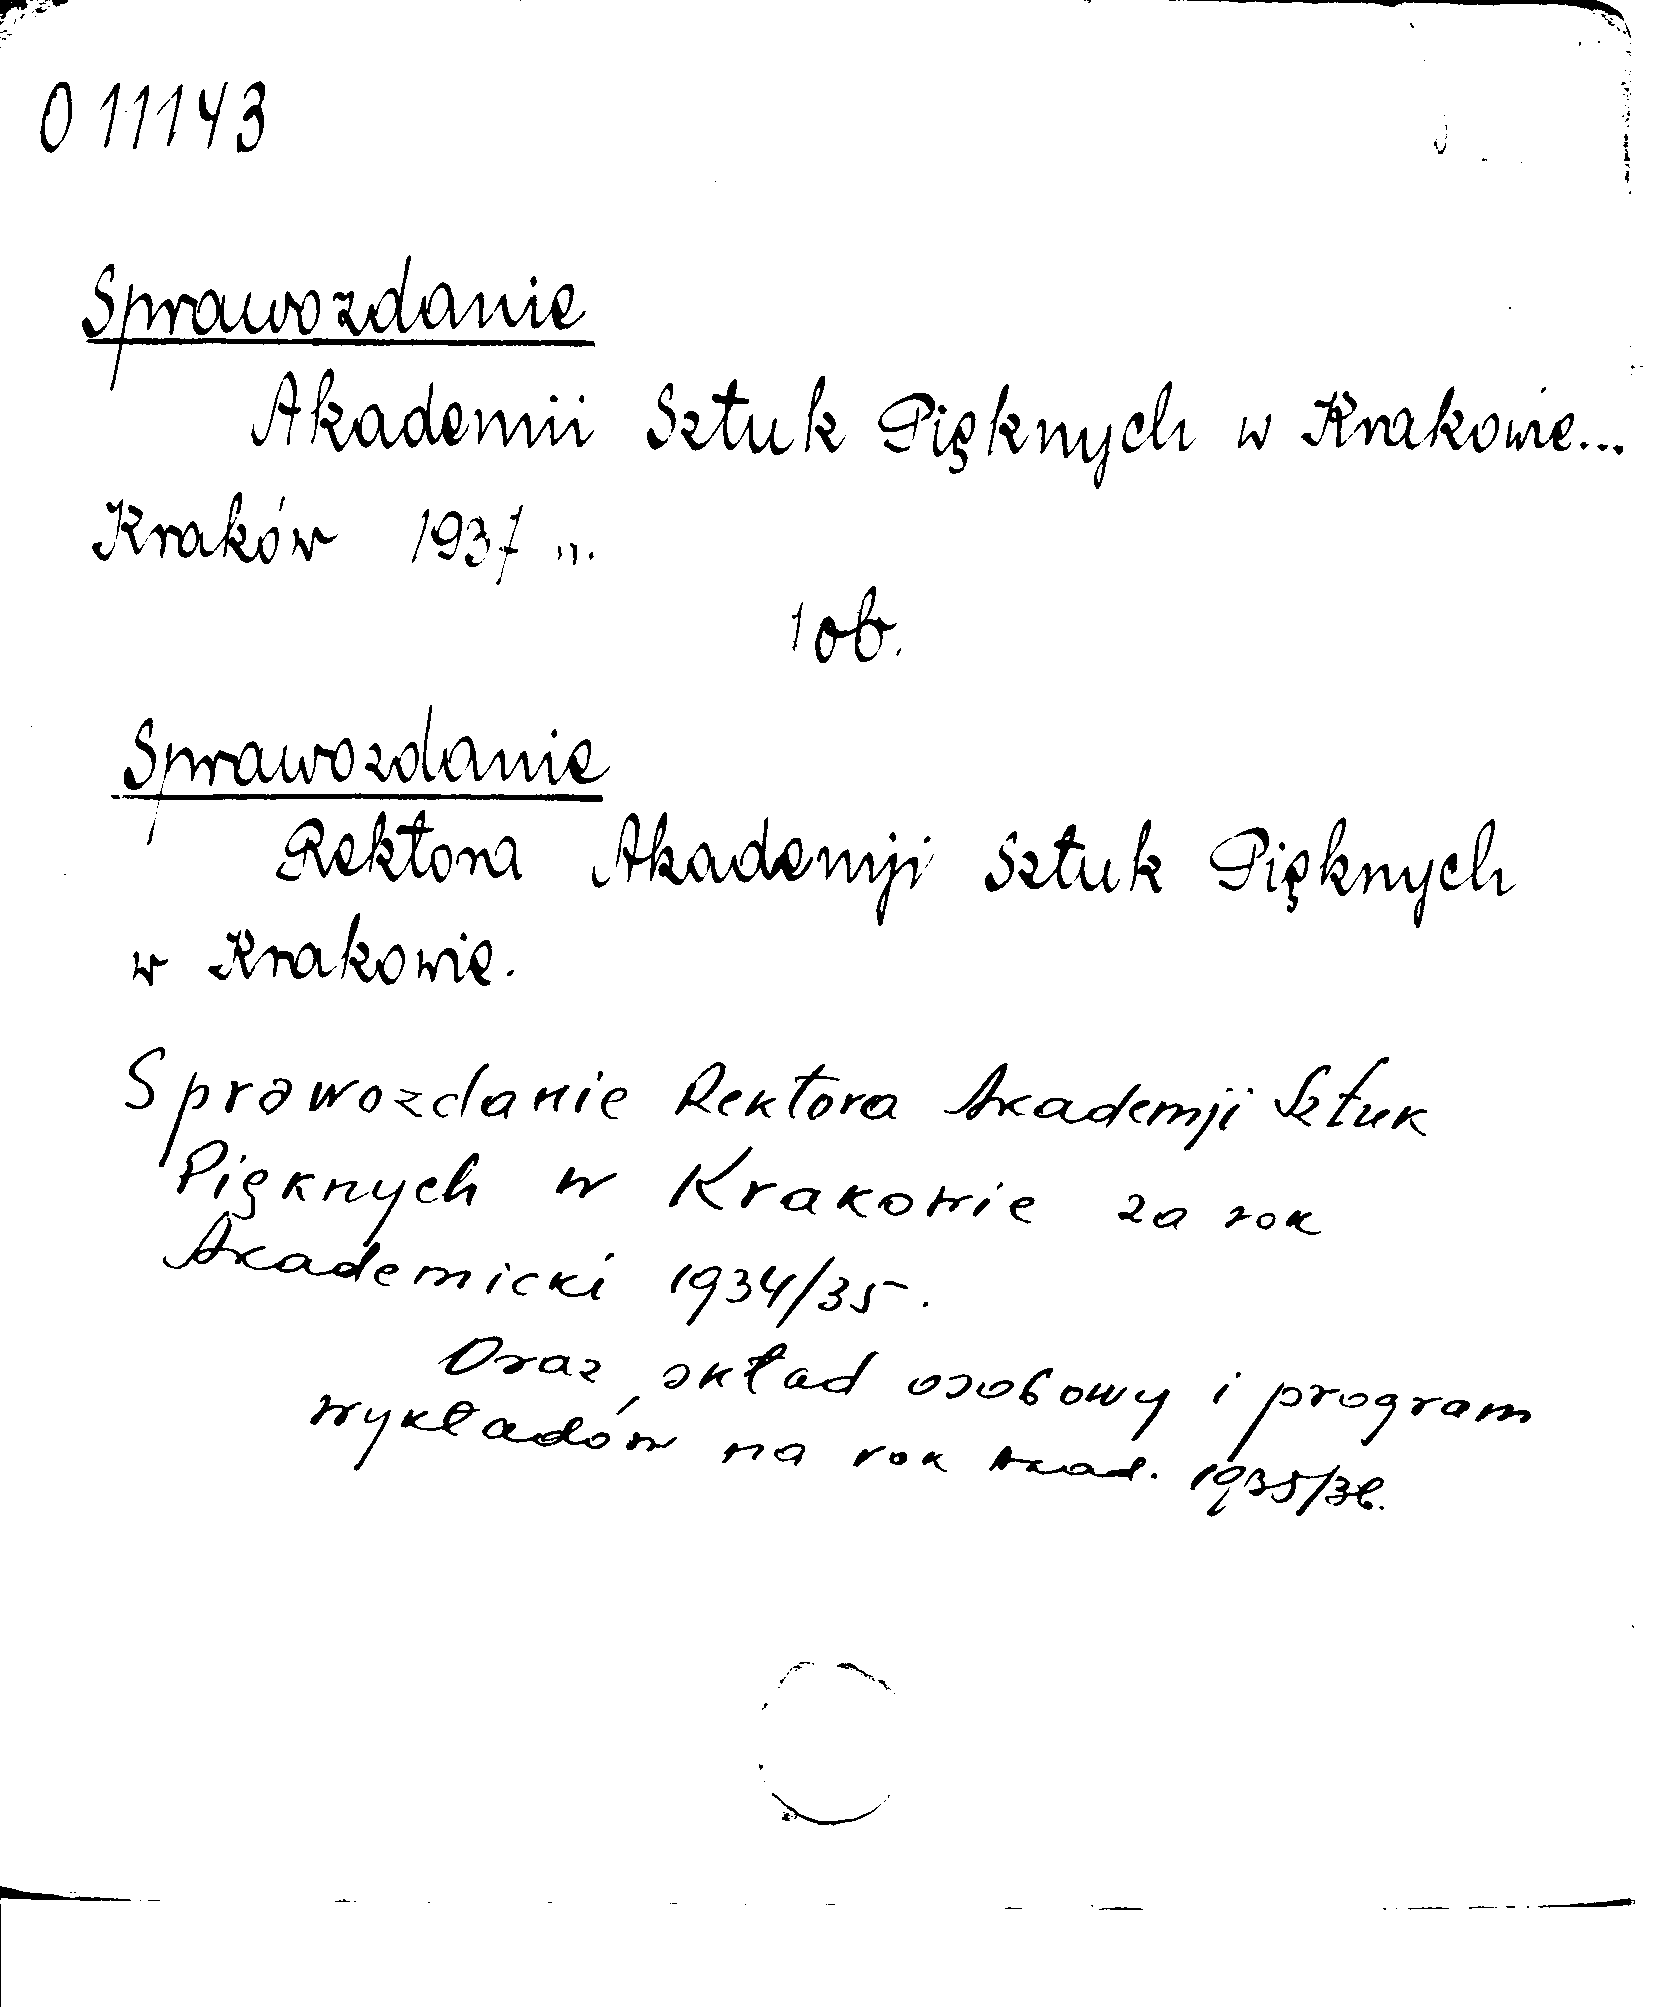 0 11143
Sprawozdanie
Akademii Sztuk Pięknych w Krakowie...
Kraków 1937 ...
1 ob.
Sprawozdanie
Rektora Akademji Sztuk Pięknych
w Krakowie.
Sprawozdanie Rektora Akademji Sztuk
Pięknych w Krakowie za rok
Akademicki 1934/35.
Oraz skład osobowy i program
wykładów na rok Akad. 1935/36.